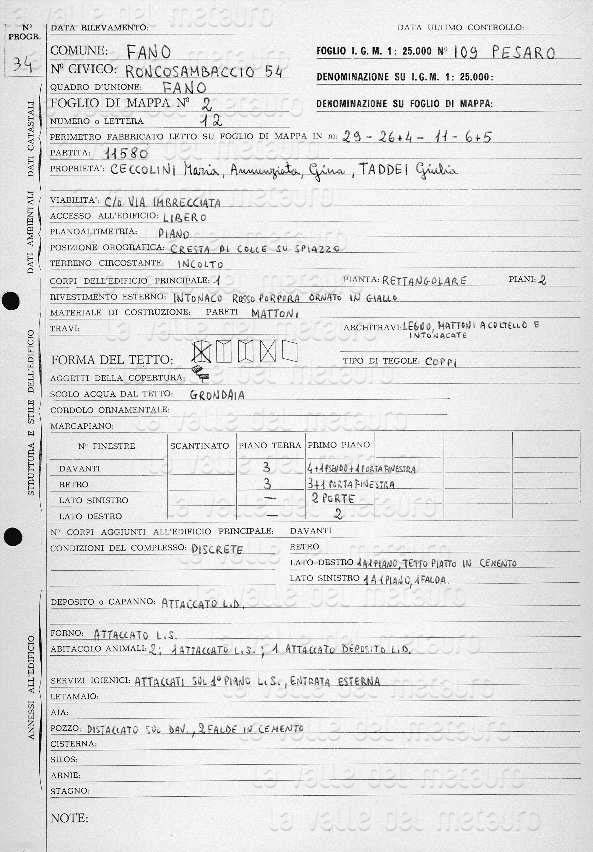 N° PROGR.
34
DATA RILEVAMENTO: DATA ULTIMO CONTROLLO:
COMUNE: FANO FOGLIO I. G. M. 1: 25.000 N° 109 PESARO
N° CIVICO: RONCOSAMBACCIO 54 DENOMINAZIONE SU I.G.M. 1: 25.000:
QUADRO D'UNIONE: FANO
FOGLIO DI MAPPA N° 2 DENOMINAZIONE SU FOGLIO DI MAPPA:
NUMERO o LETTERA 12
PERIMETRO FABBRICATO LETTO SU FOGLIO DI MAPPA IN m: 29-26+4-11-6+5
PARTITA: 11580
PROPRIETA': CECCOLINI Maria, Annunziata, Gina, TADDEI Giulia
DATI AMBIENTALI DATI CATASTALI
VIABILITA': C/O VIA IMBRECCIATA
ACCESSO ALL'EDIFICIO: LIBERO
PLANOALTIMETRIA: PIANO
POSIZIONE OROGRAFICA: CRESTA DI COLLE SU SPIAZZO
TERRENO CIRCOSTANTE: INCOLTO
CORPI DELL'EDIFICIO PRINCIPALE: 1 PIANTA: RETTANGOLARE PIANI: 2
RIVESTIMENTO ESTERNO: INTONACO ROSSO PORPORA ORNATO IN GIALLO
MATERIALE DI COSTRUZIONE: PARETI MATTONI
TRAVI: ARCHITRAVI: LEGNO, MATTONI A COLTELLO E
INTONACATE
FORMA DEL TETTO: TIPO DI TEGOLE: COPPI
AGGETTI DELLA COPERTURA:
SCOLO ACQUA DAL TETTO: GRONDAIA
CORDOLO ORNAMENTALE:
MARCAPIANO:
STRUTTURA E STILE DELL'EDIFICIO
N° FINESTRE SCANTINATO PIANO TERRA PRIMO PIANO
DAVANTI 3 4+1PSEUDO+1PORTAFINESTRA
RETRO 3 3+1PORTAFINESTRA
LATO SINISTRO — 2 PORTE
LATO DESTRO — 2
N° CORPI AGGIUNTI ALL'EDIFICIO PRINCIPALE: DAVANTI
CONDIZIONI DEL COMPLESSO: DISCRETE RETRO
LATO DESTRO 1 A 1 PIANO, TETTO PIATTO IN CEMENTO
LATO SINISTRO 1 A 1 PIANO, 1 FALDA.
DEPOSITO o CAPANNO: ATTACCATO L.D.
FORNO: ATTACCATO L.S.
ABITACOLO ANIMALI: 2; 1 ATTACCATO L.S.; 1 ATTACCATO DEPOSITO L.D.
SERVIZI IGIENICI: ATTACCATI SUL 1° PIANO L.S., ENTRATA ESTERNA
LETAMAIO:
AIA:
POZZO: DISTACCATO SUL DAV., 2 FALDE IN CEMENTO
CISTERNA:
SILOS:
ARNIE:
STAGNO:
ANNESSI ALL'EDIFICIO
NOTE:
la valle del metauro